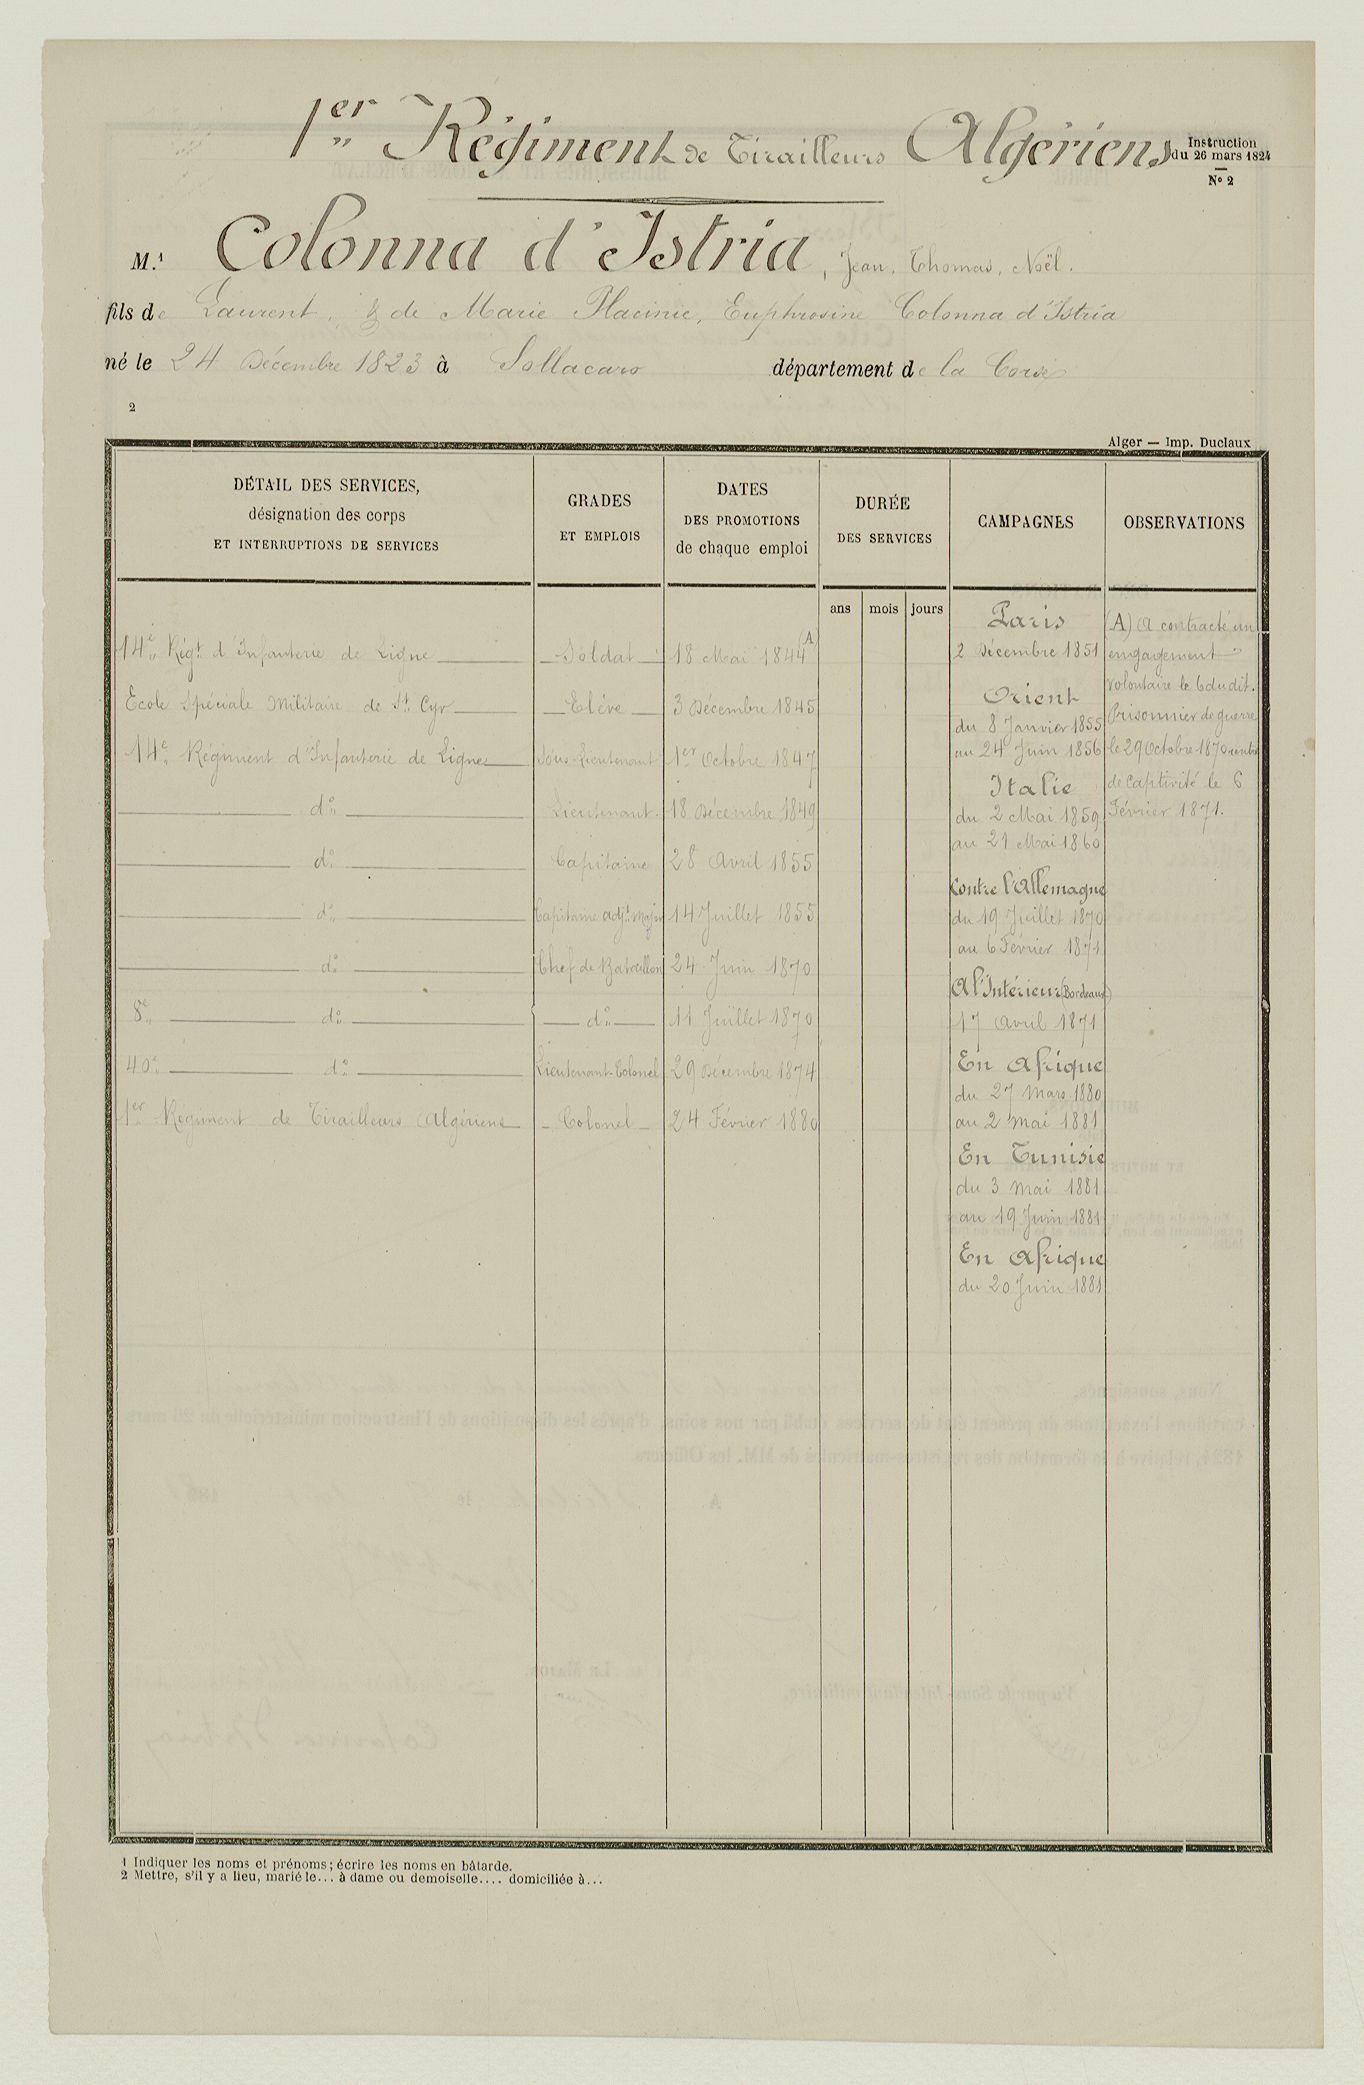 1er Régiment de Tirailleurs Algériens
Instruction
du 26 mars 1824
N° 2
M.1 Colonna d'Istria, Jean, Thomas, Noël.
fils de Laurent, & de Marie Placinie, Euphrosine Colonna d'Istria
né le 24 Décembre 1823 à Sollacaro département de la Corse
2
Alger — Imp. Duclaux
DÉTAIL DES SERVICES,
désignation des corps
ET INTERRUPTIONS DE SERVICES
GRADES
ET EMPLOIS
DATES
DES PROMOTIONS
de chaque emploi
DURÉE
DES SERVICES
CAMPAGNES
OBSERVATIONS
ans mois jours
14e Régt d'Infanterie de Ligne Soldat 18 Mai 1844 (A)
Ecole Spéciale Militaire de St Cyr Elève 3 Décembre 1845
14e Régiment d'Infanterie de Ligne Sous-Lieutenant 1er Octobre 1847
do Lieutenant 18 Décembre 1849
do Capitaine 28 Avril 1855
do Capitaine adjt Major 14 Juillet 1855
do Chef de Bataillon 24 Juin 1870
8e do do 11 Juillet 1870
40e do Lieutenant-Colonel 29 Décembre 1874
1er Régiment de Tirailleurs Algériens Colonel 24 Février 1880
Paris
2 Décembre 1851
Orient
du 8 Janvier 1855
au 24 Juin 1856
Italie
du 2 Mai 1859
au 21 Mai 1860
Contre l'Allemagne
du 19 Juillet 1870
au 6 Février 1871
A l'Intérieur (Bordeaux)
17 Avril 1871
En Afrique
du 27 Mars 1880
au 2 Mai 1881
En Tunisie
du 3 Mai 1881
au 19 Juin 1881
En Afrique
du 20 Juin 1881
(A) A contracté un
engagement
volontaire le 6 dudit.
Prisonnier de guerre
le 29 Octobre 1870 rentré
de captivité le 6
Février 1871.
1 Indiquer les noms et prénoms; écrire les noms en bâtarde.
2 Mettre, s'il y a lieu, marié le... à dame ou demoiselle.... domiciliée à...